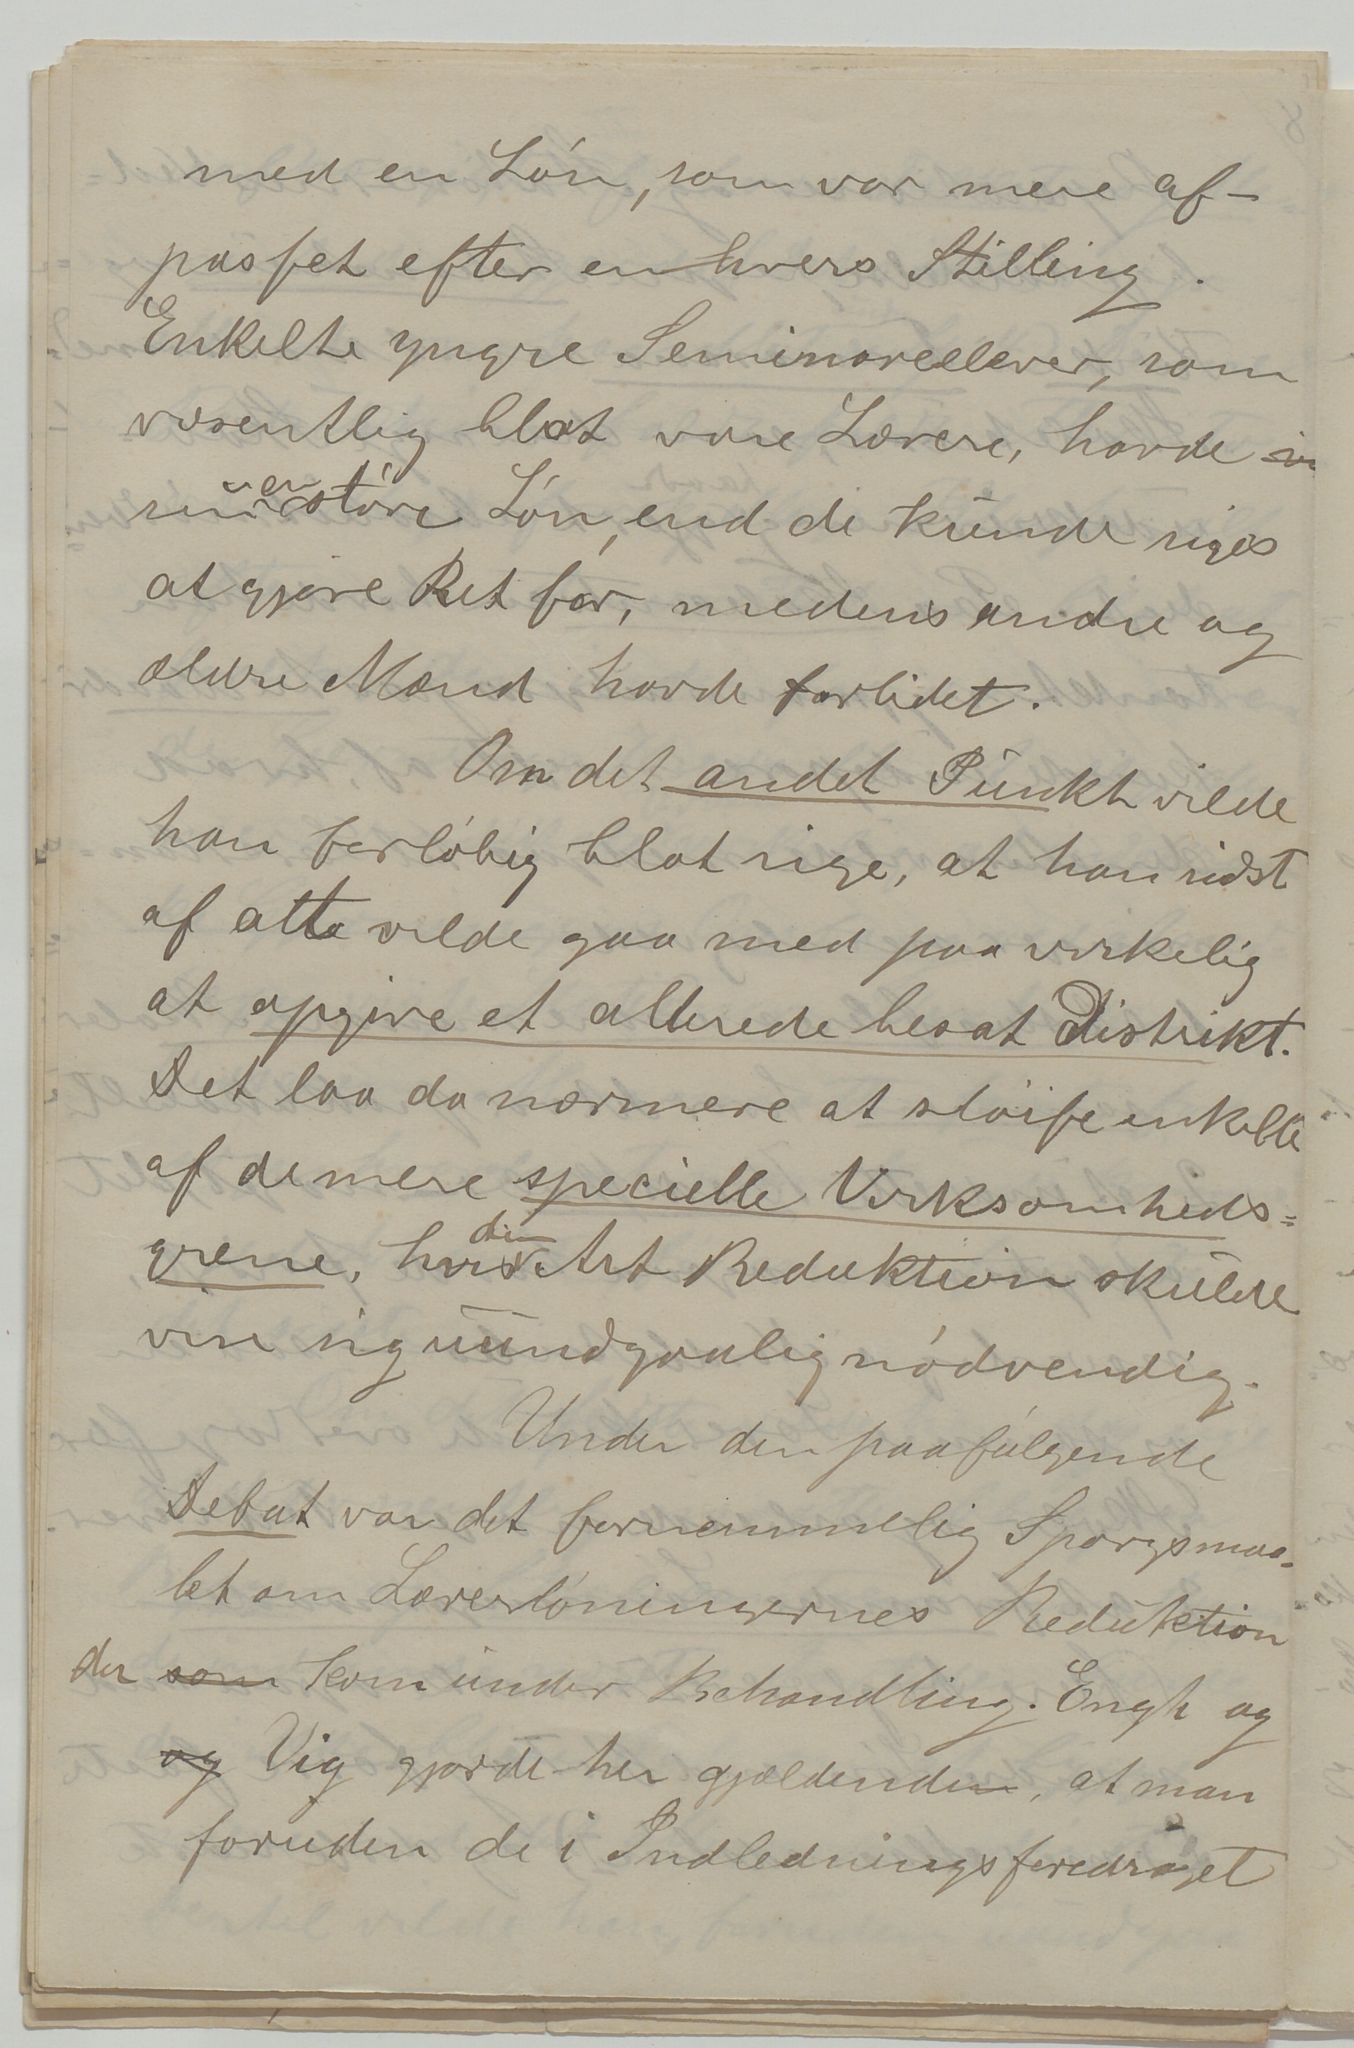 med en Løn, som var mere af-
passet efter enhvers Stilling.
Enkelte yngre Seminarelever, som
væsentlig blot vare Lærere, havde
en større Løn, end de kunde siges
at gjøre Ret for, medens andre og
ældre Mænd havde for lidet.
Om det andet Punkt vilde
han forløbig blot sige, at han sidst
af alt vilde gaa med paa virkelig
at opgive et allerede besat Distrikt.
Det laa da nærmere at sløife enkelte
af de mere specielle Virksomheds=
grene, hvis den Art Reduktion skulde
vise sig uundgaaelig nødvendig.
Under den paafølgende
Debat var det fornemmelig Spørgsmaa-
let om Lærerlønningernes Reduktion
der som kom under Behandling. Engh og
og Vig gjorde her gjældende, at man
foruden de i Indledningsforedraget